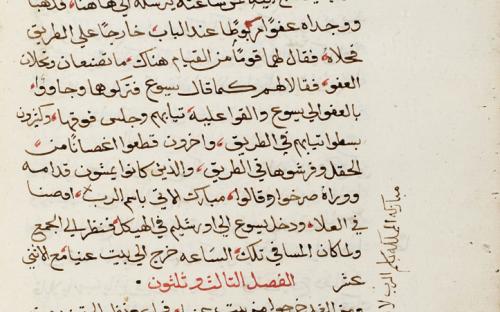 ووجداه عفوا مربوطا عند الباب خارجا على الطريق
فحلاه، فقال لهما قوما من القيام هناك، ما تصنعان وتحلان
العفو، فقالا لهم كما قال يسوع فتركوها وجاووا
بالعفو الي يسوع والقوا عليه تيابهم وجلس فوقها، وكثيرون
بسطوا تيابهم في الطريق، واخرون قطعوا اغصانا من
الحقل وفرشوها في الطريق، والذين كانوا يمشون قدامه
ووراه صرخوا وقالوا، مبارك الاتي باسم الرب، اوصنا
في العلاء ودخل يسوع الي اورشليم في الهيكل فنظر الي الجمع
ولما كان المسا في تلك الساعه خرج الي بيت عنيا مع الاثني
عشر
الفصل التالت وتلثون
مباركه المملكه